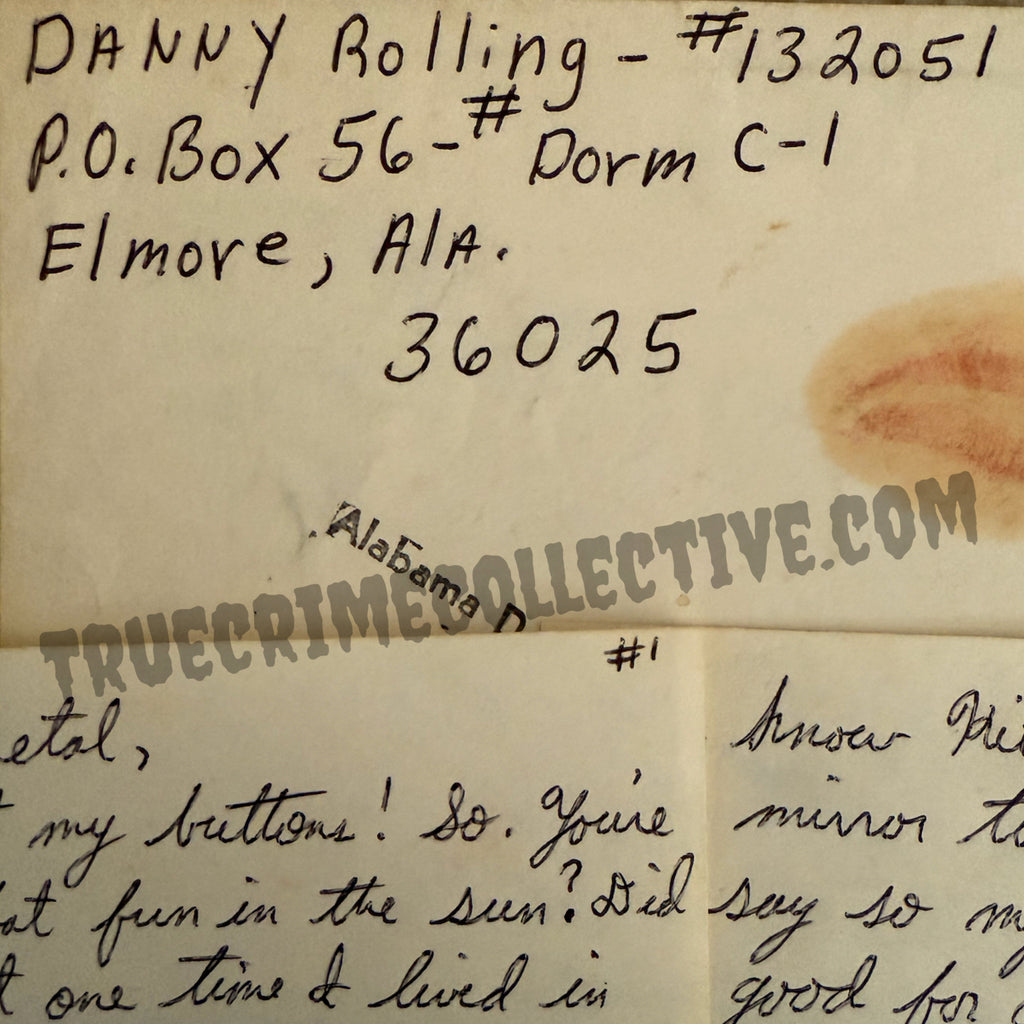 DANNY Rolling - #132051
P.O. Box 56-# Dorm C-1
Elmore, Ala.
36025
Alabama D
TRUECRIMECOLLECTIVE.COM
#1
etal,
my buttons! So. You're
at fun in the sun? Did
t one time I lived in
know
mirror to
say so my
good for